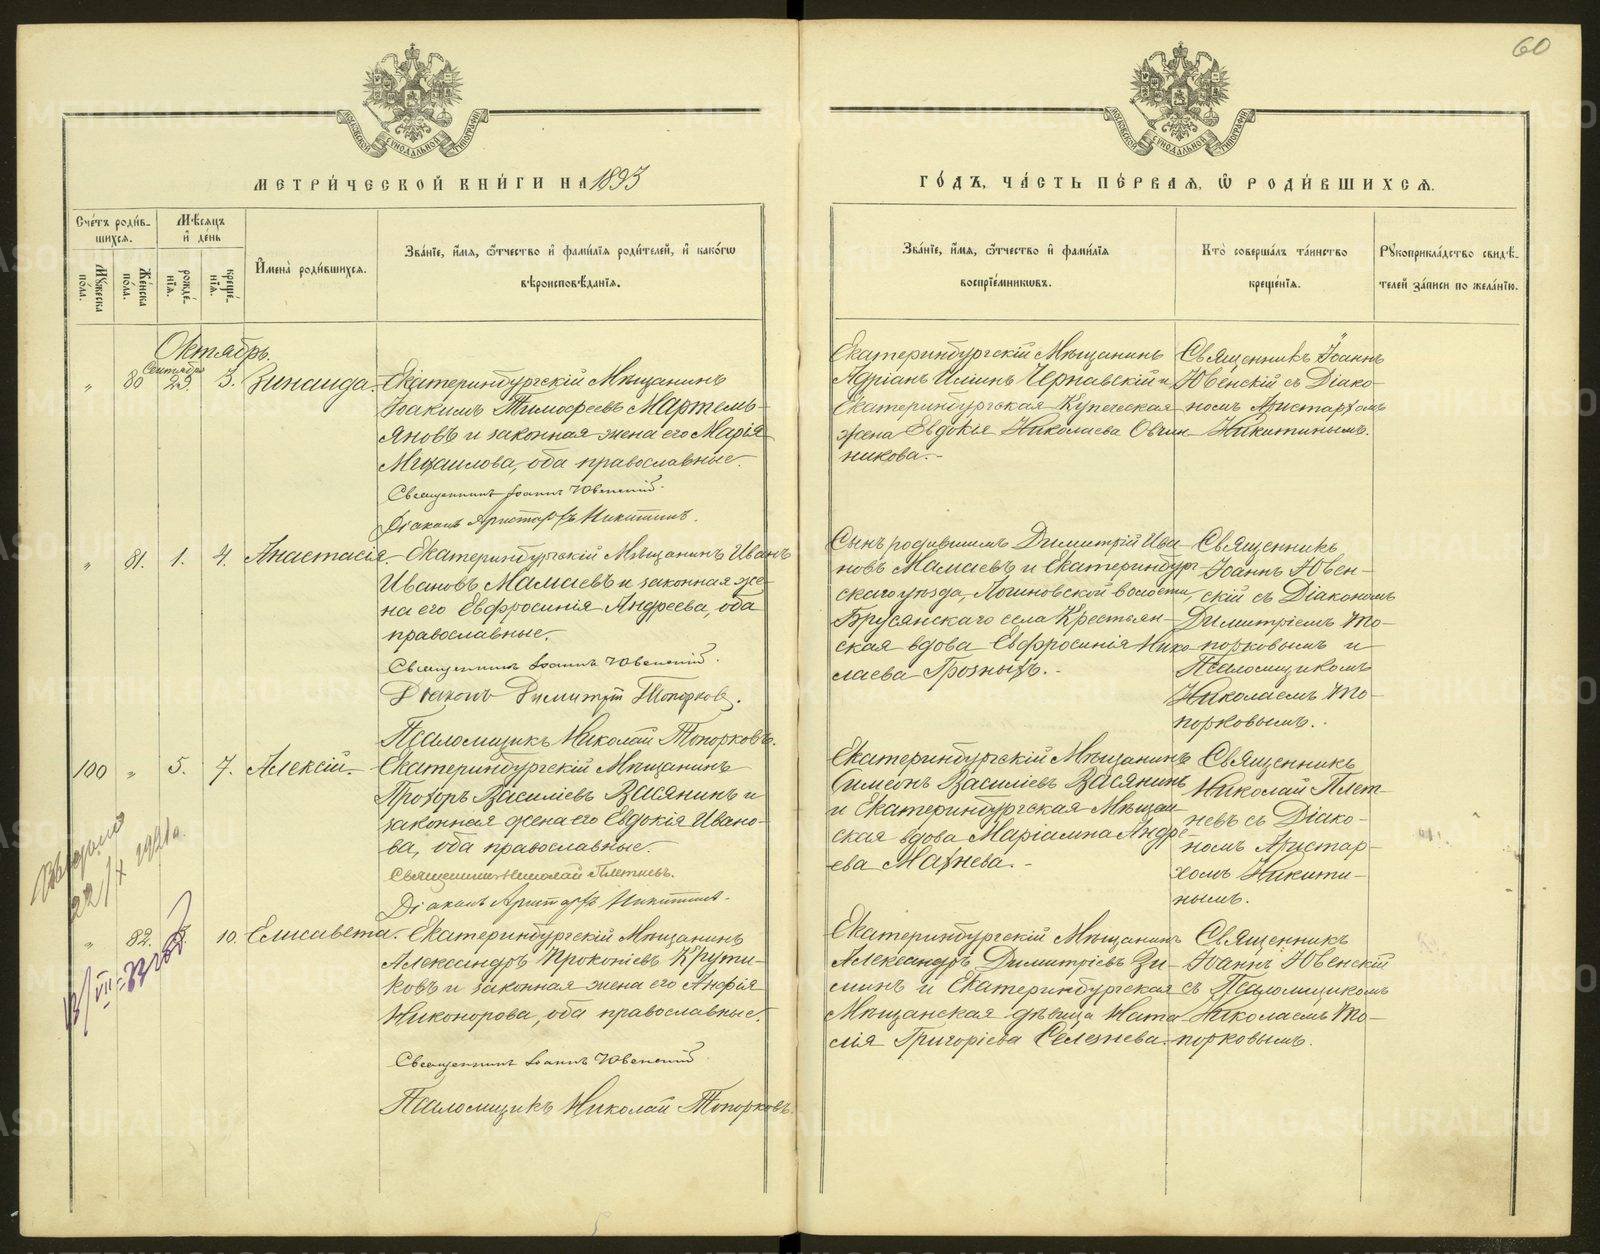 60
МОСКОВСКОЙ СѴНОДАЛЬНОЙ ТИПОГРАФІИ
МОСКОВСКОЙ СѴНОДАЛЬНОЙ ТИПОГРАФІИ
МЕТРИ́ЧЕСКОЙ КНИ́ГИ НА 1893
ГО́ДЪ, ЧА́СТЬ ПЕ́РВАЯ, Ѡ҆ РОДИ́ВШИХСЯ.
Сче́тъ роди́в-
шихся.
Мꙋжеска по́ла.
Же́нска по́ла.
Мѣ́сяцъ
и҆ де́нь
рожде́-
нїя.
креще́-
нїя.
И҆мена̀ роди́вшихся.
Зва́нїе, и҆́мя, ѻ҆́тчество и҆ фами́лїя роди́телей, и҆ како́гѡ
вѣроисповѣ́данїя.
Зва́нїе, и҆́мя, ѻ҆́тчество и҆ фами́лїя
воспрїе́мникѡвъ.
Кто̀ соверша́лъ та́инство
креще́нїя.
Рꙋкоприкла́дство свидѣ́-
телей за́писи по жела́нїю.
Октябрь.
Сентября
" 80 29. 3. Зинаида.
Екатеринбургскій Мѣщанинъ
Іоакимъ Тимофеевъ Мартемь-
яновъ и законная жена его Марія
Михаилова, оба православные.
Священникъ Іоаннъ Ювенскій.
Діаконъ Аристархъ Никитинъ.
Екатеринбургскій Мѣщанинъ
Адріанъ Илiинъ Чернавскій и
Екатеринбургская Купеческая
жена Евдокія Николаева Овчин-
никова.
Священникъ Іоаннъ
Ювенскій съ Діако-
номъ Аристархомъ
Никитинымъ.
" 81. 1. 4. Анастасія.
Екатеринбургскій Мѣщанинъ Иванъ
Ивановъ Мамаевъ и законная же-
на его Евфросинія Андреева, оба
православные.
Священникъ Іоаннъ Ювенскій.
Діаконъ Димитрій Топорковъ.
Псаломщикъ Николай Топорковъ.
Сынъ родившимъ Димитрій Ива-
новъ Мамаевъ и Екатеринбург-
скаго уѣзда, Логиновской волости,
Брусянскаго села Крестьян-
ская вдова Евфросинія Нико-
лаева Грозныхъ.
Священникъ
Іоаннъ Ювен-
скій съ Діакономъ
Димитріемъ То-
порковымъ и
Псаломщикомъ
Николаемъ То-
порковымъ.
100 " 5. 7. Алексій.
Екатеринбургскій Мѣщанинъ
Прохоръ Василіевъ Васянинъ и
законная жена его Евдокія Ивано-
ва, оба православные.
Священникъ Николай Плетневъ.
Діаконъ Аристархъ Никитинъ.
Екатеринбургскій Мѣщанинъ
Симеонъ Василіевъ Васянинъ
и Екатеринбургская Мѣщан-
ская вдова Маріамна Андре-
ева Махнева.
Священникъ
Николай Плет-
невъ съ Діако-
номъ Аристар-
хомъ Никити-
нымъ.
Выдано
22/X 1921 г.
" 82. 10. Елисавета.
Екатеринбургскій Мѣщанинъ
Александръ Прокопіевъ Крути-
ковъ и законная жена его Анфія
Никонорова, оба православные.
Священникъ Іоаннъ Ювенскій
Псаломщикъ Николай Топорковъ.
Екатеринбургскій Мѣщанинъ
Александръ Димитріевъ Зи-
минъ и Екатеринбургская
Мѣщанская дѣвица Ната-
лія Григоріева Селезнева.
Священникъ
Іоаннъ Ювенскій
съ Псаломщикомъ
Николаемъ То-
порковымъ.
METRIKI.GASO-URAL.RU